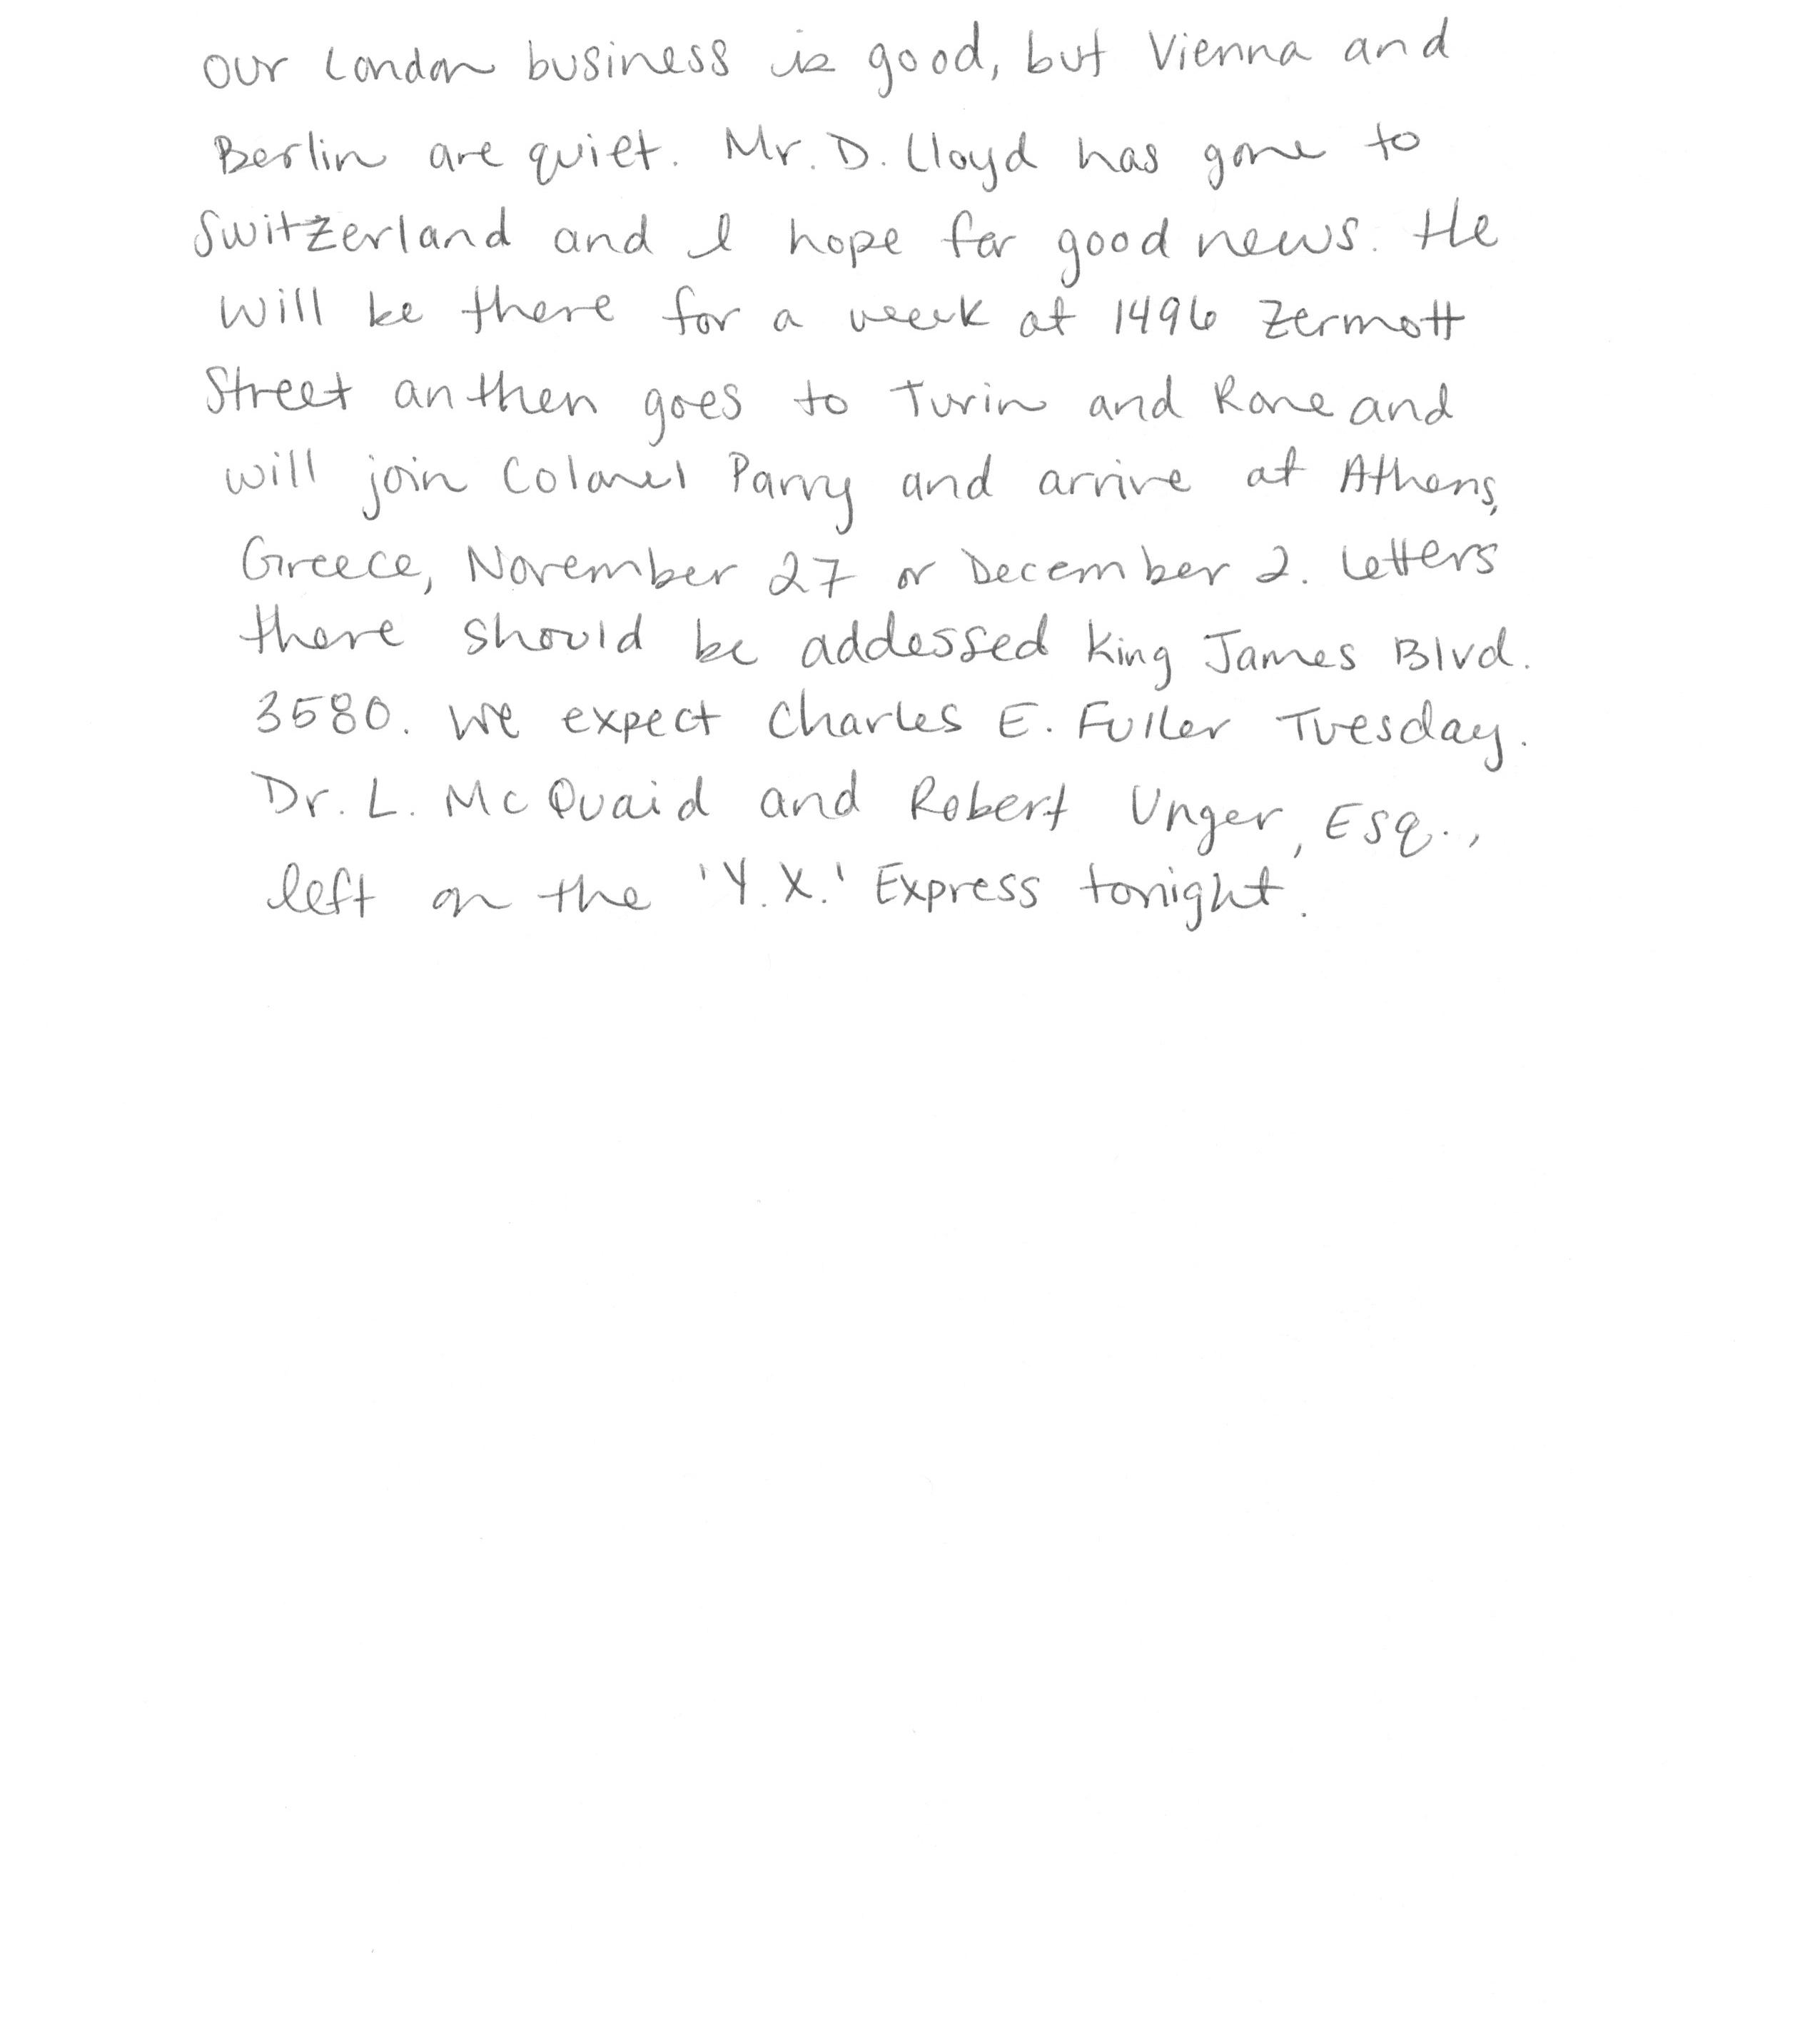 Our London business is good, but Vienna and
Berlin are quiet. Mr. D. Lloyd has gone to
Switzerland and I hope for good news. He
will be there for a week at 1496 Zermott
Street an then goes to Turin and Rome and
will join Colonel Parry and arrive at Athens,
Greece, November 27 or December 2. Letters
there should be addessed King James Blvd.
3580. We expect Charles E. Fuller Tuesday.
Dr. L. McQuaid and Robert Unger, Esq.,
left on the 'Y.X.' Express tonight.